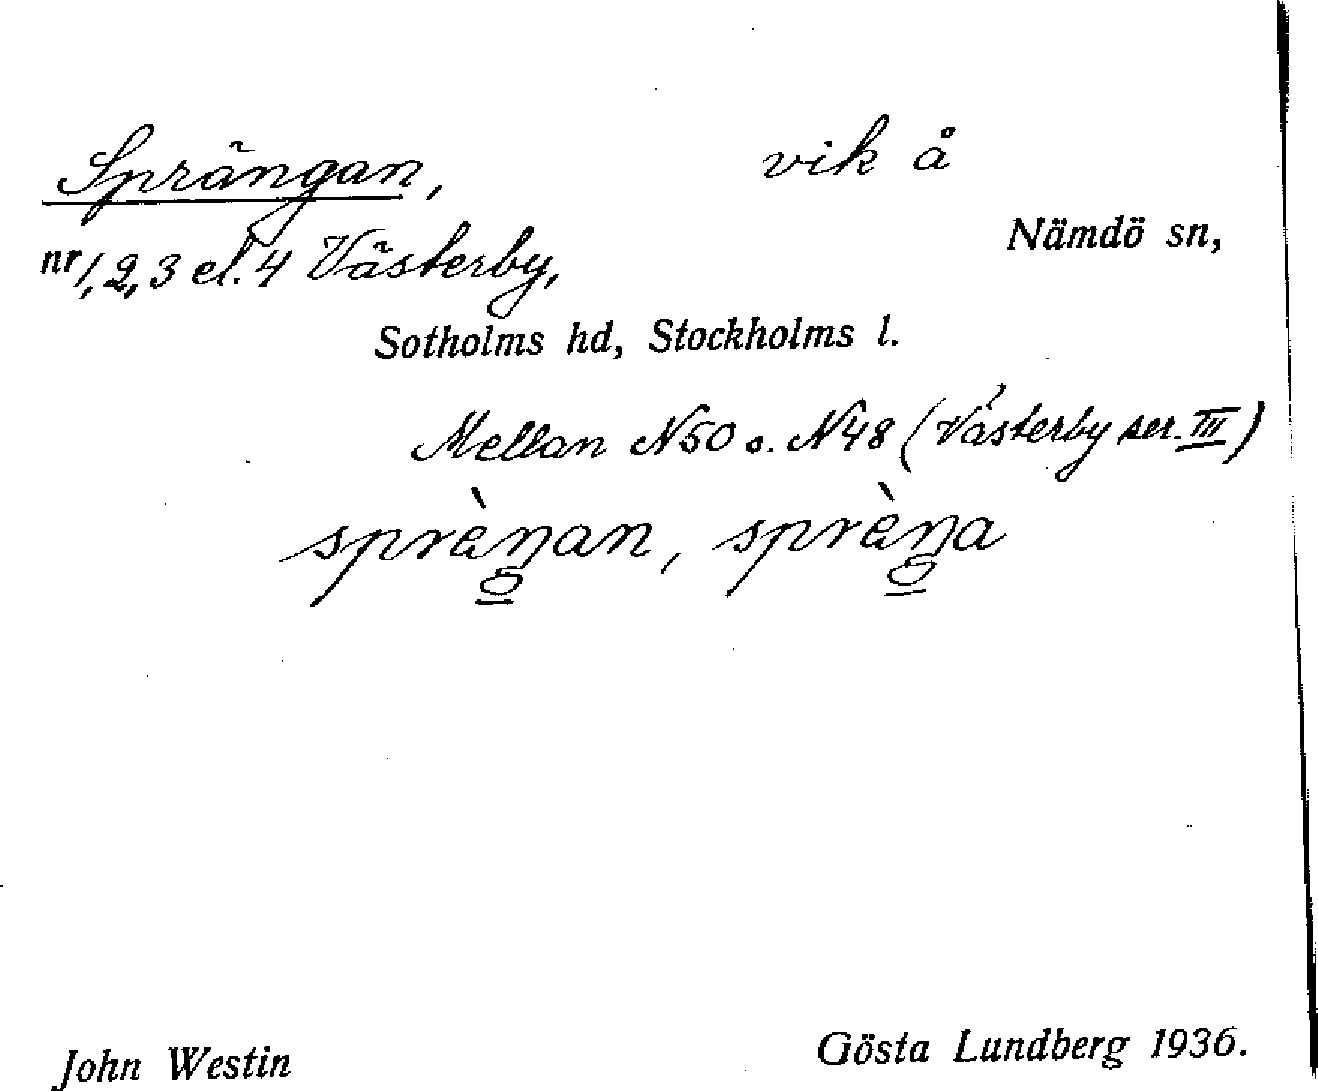 Sprängan, vik å
Nämdö sn,
nr 1, 2, 3 el. 4 Västerby,
Sotholms hd, Stockholms l.
Mellan N50 o. N48 (Västerby ser. III)
sprèŋan, sprèŋa
John Westin Gösta Lundberg 1936.